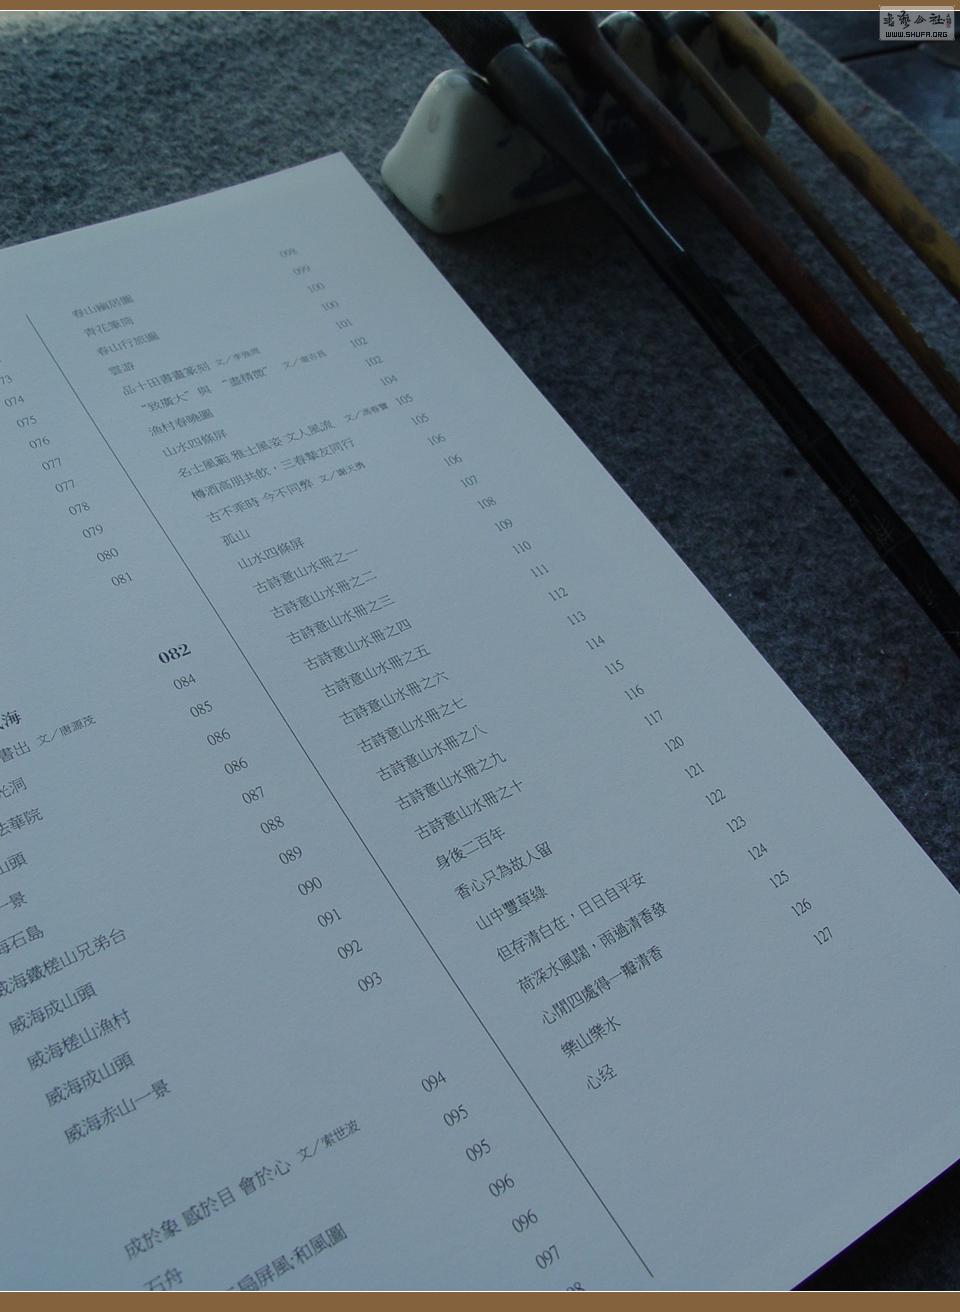 073
074
075
076
077
077
078
079
080
081
海 082
書出 文／唐源茂 084
光洞 085
法華院 086
山頭 086
一景 087
海石島 088
威海鐵槎山兄弟台 089
威海成山頭 090
威海槎山漁村 091
威海成山頭 092
威海赤山一景 093
成於象 感於目 會於心 文／索世波 094
石舟 095
扇屏風·和風圖 095
096
096
097
春山幽居圖 098
青花筆筒 099
春山行旅圖 100
雲游 100
品十田書畫篆刻 101
“致廣大”與“盡精微” 102
漁村春曉圖 102
山水四條屏 104
名士風範 雅士風姿 文人風流 105
樽酒高朋共飲，三春摯友同行 105
古不乖時 今不同弊 106
孤山 106
山水四條屏 107
古詩意山水冊之一 108
古詩意山水冊之二 109
古詩意山水冊之三 110
古詩意山水冊之四 111
古詩意山水冊之五 112
古詩意山水冊之六 113
古詩意山水冊之七 114
古詩意山水冊之八 115
古詩意山水冊之九 116
古詩意山水冊之十 117
身後二百年 120
香心只為故人留 121
山中豐草綠 122
但存清白在，日日自平安 123
荷深水風闊，雨過清香發 124
心閒四處得一瓣清香 125
樂山樂水 126
心经 127
WWW.SHUFA.ORG